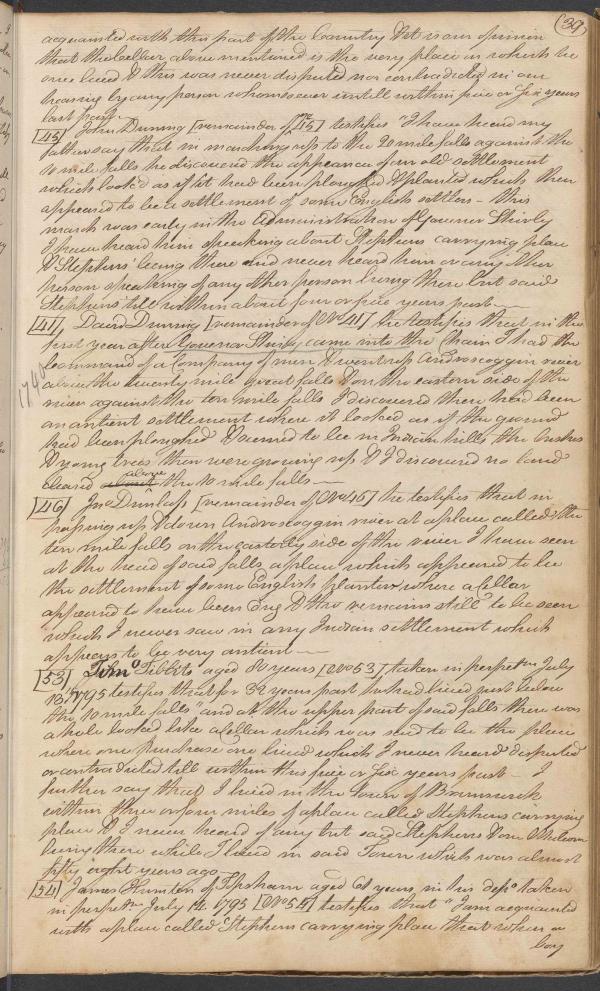 (39)
acquainted with this part of the Country that is our opinion
that the Cellar above mentioned is the very place in which he
once lived & this was never disputed nor contradicted in our
hearing by any person whomsoever untill within five or six years
last past.
[45] John Dunning [remainder of No 45] testifies "I have heard my
father say that in marching up to the 20 mile falls against the
10 mile falls he discovered the appearance of an old settlement
which look'd as if it had been ploughed & planted which then
appeared to be a settlement of some English settlers - this
march was early in the administration of Governor Shirley
I have heard him speaking about Stephens carrying place
& Stephens' being there and never heard him or any other
person speaking of any other person living there but said
Stephens till within about four or five years past -
[41] David Dunning [remainder of No 41] he testifies that in the
first year after Governor Shirley came into the Chair I had the
1740
command of a Company of men & went up Androscoggin river
above the twenty mile great falls & on the eastern side of the
river against the ten mile falls I discovered there had been
an antient settlement where it looked as if the ground
had been ploughed & seemed to be in Indian hills, the bushes
& young trees then were growing up & I discovered no land
cleared about above the 10 mile falls -
[46] Jno Dunlap [remainder of No 46] he testifies that in
passing up & down Androscoggin river at a place called the
ten mile falls on the easterly side of the river I have seen
at the head of said falls a place which appeared to be
the settlement of some English planter where a Cellar
appeared to have been dug & the remains still to be seen
which I never saw in any Indian settlement which
appears to be very antient -
[53] Timo Tibbets aged 80 years [No 53] taken in perpetm July
13th 1795 testifies that for 39 years past he had lived just below
the 10 mile falls "and at the upper part of said falls there was
a hole looked like a Cellar which was said to be the place
where one Purchase once lived which I never heard disputed
or contradicted till within this five or six years past - I
further say that I lived in the town of Brunswick
within three or four miles of a place called Stephens carrying
place & I never heard of any but said Stephens
living there while I lived in said Town which was almost
fifty eight years ago -
[54] James Hunter of Topsham aged 61 years in his depo taken
in perpetm July 14. 1795 [No 54] testifies that "I am acquainted
with a place called Stephens carrying place that when a
boy